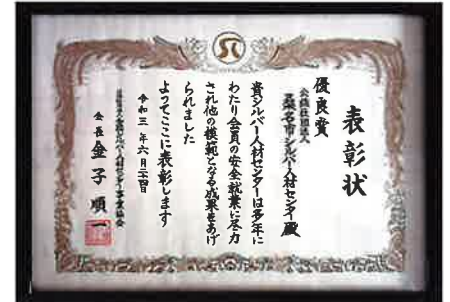 表彰状
優良賞
公益社団法人
桑名市シルバー人材センター殿
貴シルバー人材センターは多年に
わたり会員の安全就業に尽力
され他の模範となる成果をあげ
られました
よってここに表彰します
令和三年六月二十四日
公益社団法人全国シルバー人材センター事業協会
会長 金子順一